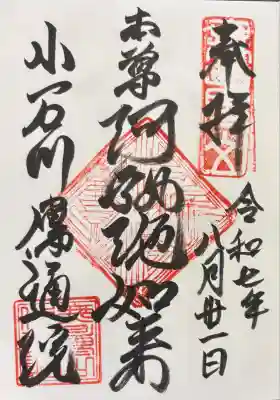 奉拝
令和七年
八月廿一日
本尊
阿弥陀如来
小石川
傳通院